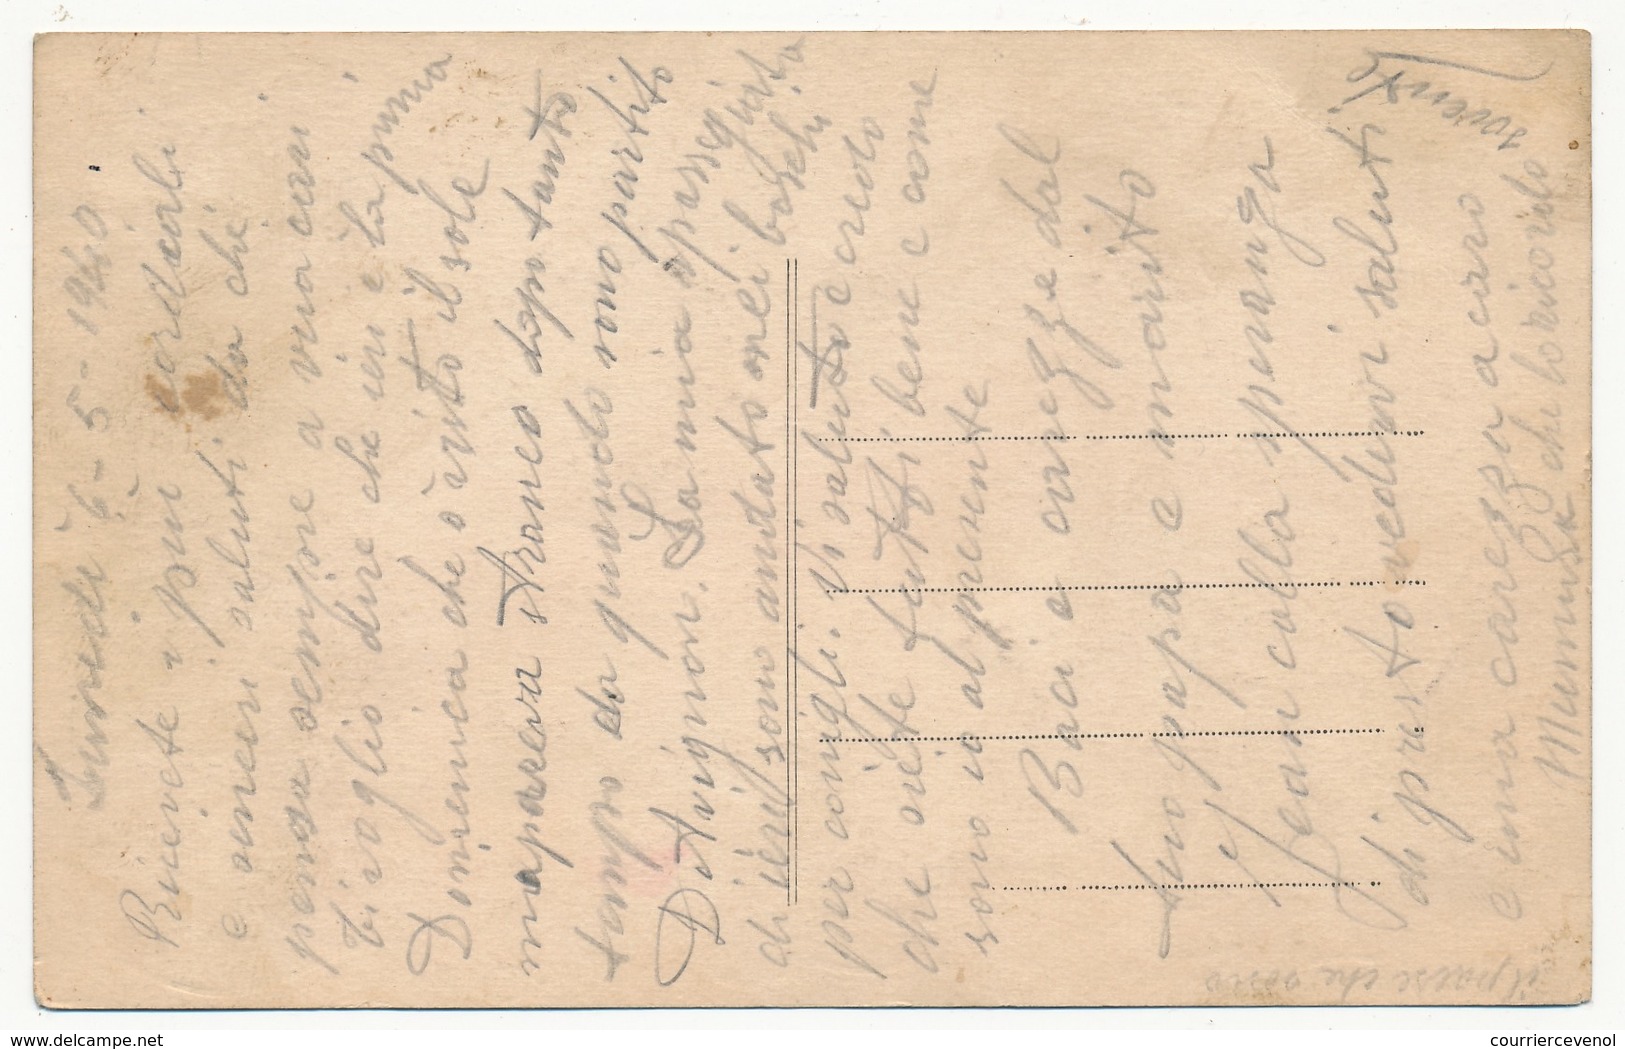 Lunedi 6-5-1940
Ricevete i piu cordiali
e sinceri saluti da che
penso sempre a voi cari
ti voglio dire che ieri è la prima
Domenica che ò visto il sole
mapareva straneo dopo tanto
tempo da quando sono partito
D'Avignon. La mia spasseggiata
di ieri sono andato nei boschi
per conigli. Vi saluto e credo
che siete tutti bene e come
sono io al presente
Baci e carezze dal
tuo papa e marito
Jean colla speranza
di presto vedervi saluti
e una carezza a caro
che lo ricordo
sovente
il paese che sono
courriercevenol
www.delcampe.net